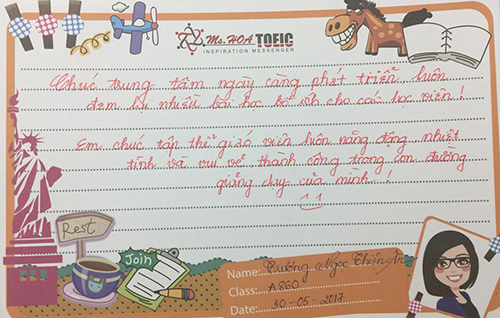 Ms. HOA TOEIC
INSPIRATION MESSENGER
Chúc trung tâm ngày càng phát triển, luôn
đem lại nhiều bài học bổ ích cho các học viên !
Em chúc tập thể giáo viên luôn năng động, nhiệt
tình và vui vẻ thành công trong con đường
giảng dạy của mình !
Rest
Join
Name: Trương Ngọc Thiên Ân
Class: A860
Date: 30-05-2017